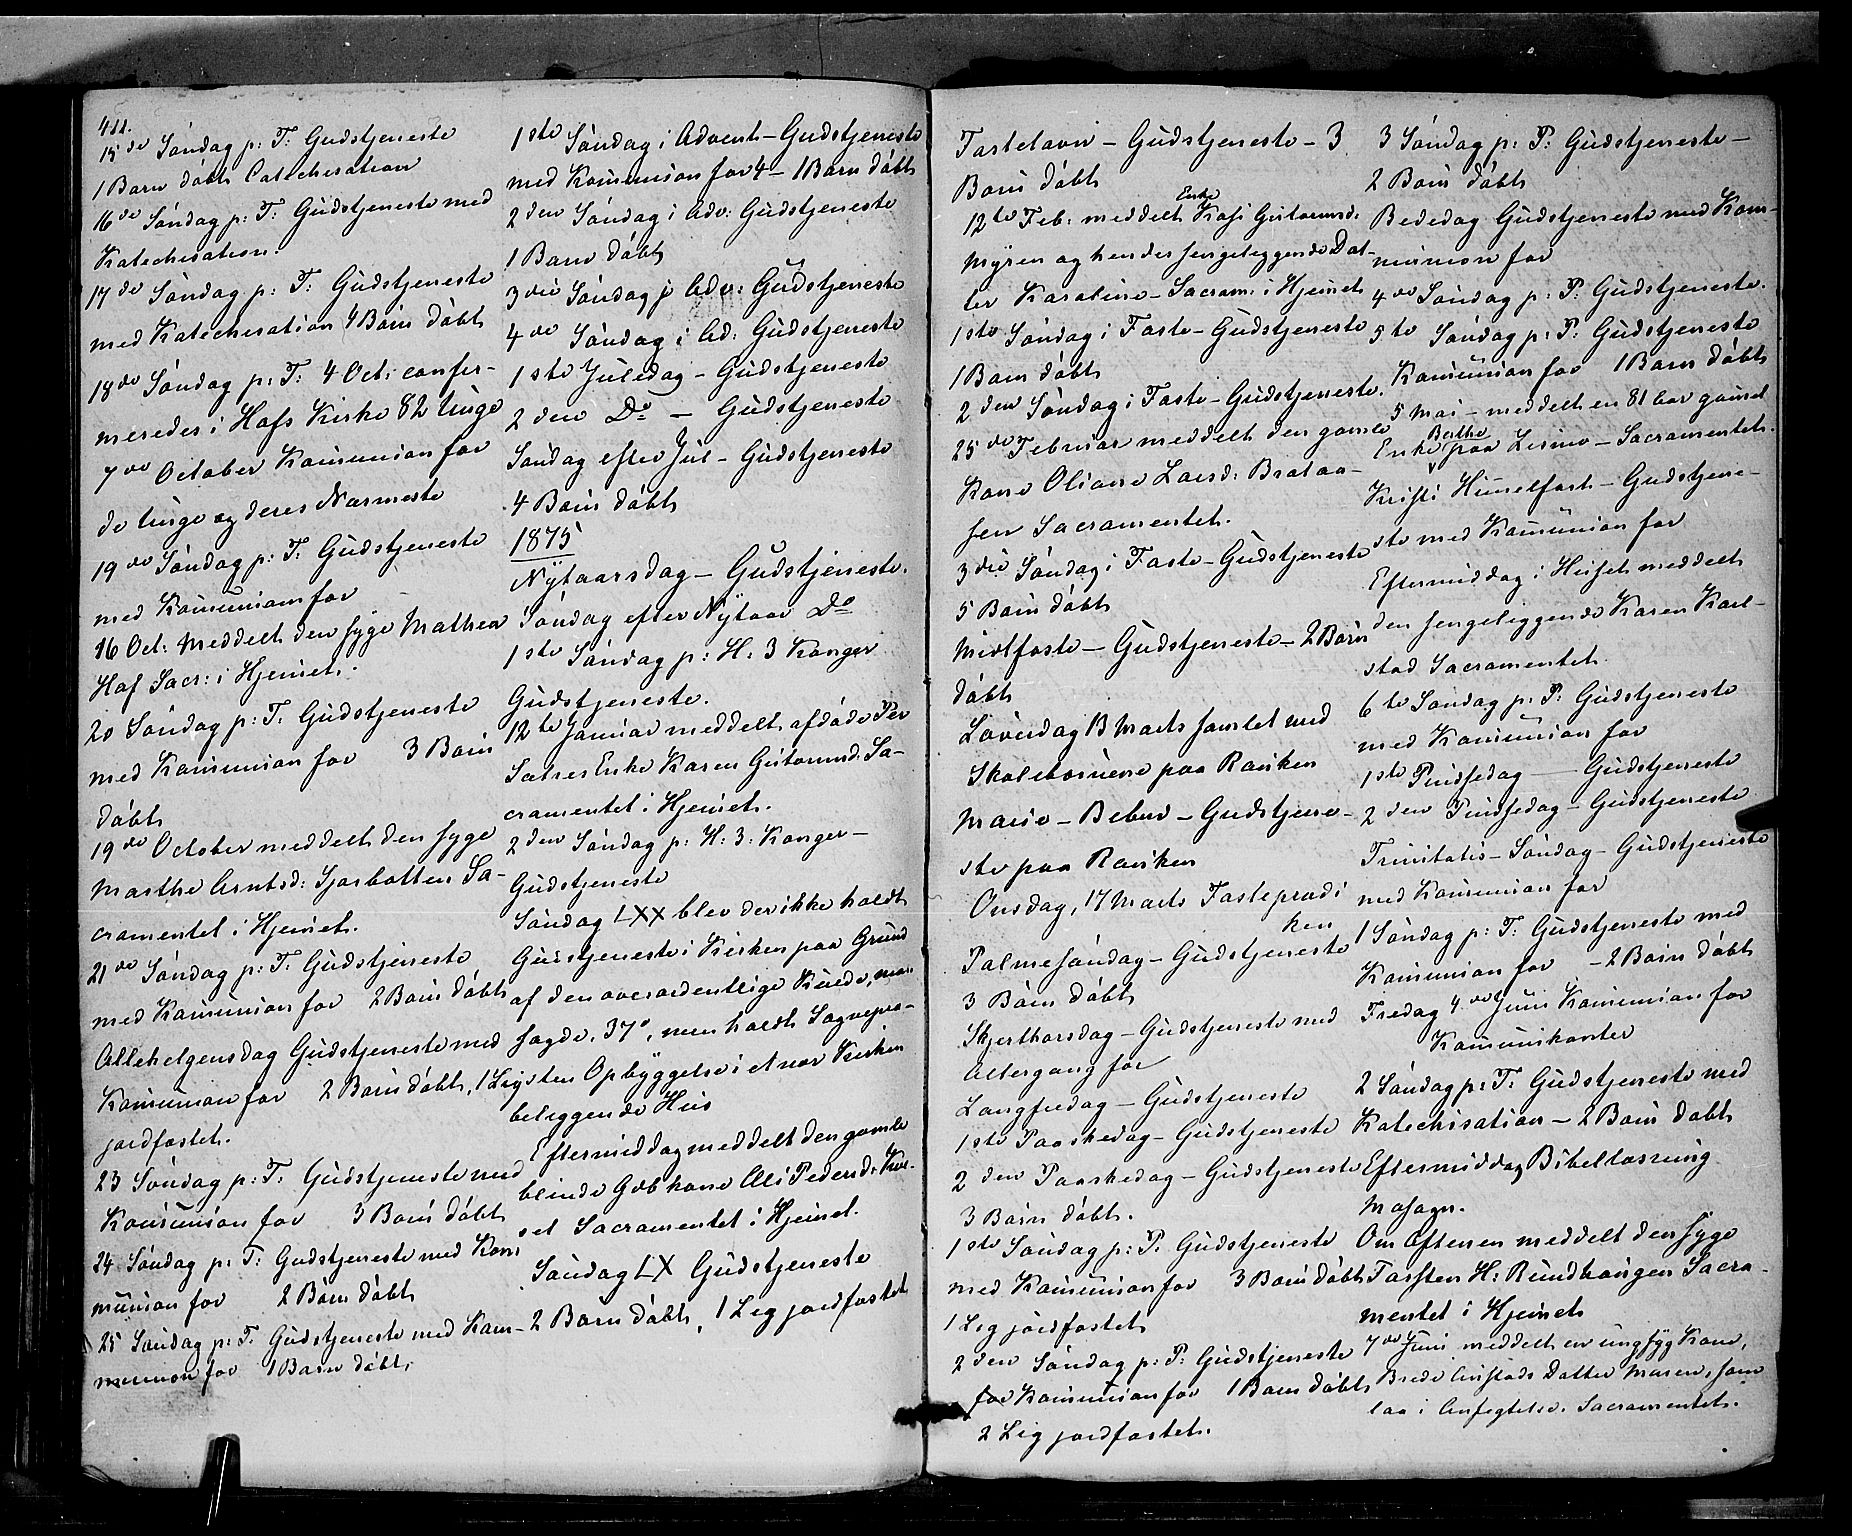 411.
15de Søndag p: T: Gudstjeneste
1 Barn døbt Catechisation
16de Søndag p: T: Gudstjeneste med
Katechisation.
17de Søndag p: T: Gudstjeneste
med Katechisation 4 Børn døbt
18de Søndag p: T: 4 Oct: confir-
meredes i Hofs Kirke 82 Unge
7de October Kommunion for
de Unge og deres Nærmeste
19de Søndag p: T: Gudstjeneste
med Kommunion for
16 Oct: meddelt den syge Mathea
Hof Sacr: i Hjemmet.
20 Søndag p: T: Gudstjeneste
med Kommunion for 3 Børn
døbt
19de October meddelt den syge
Marthe Arntsd: Sjorbotten Sa-
cramentet i Hjemmet.
21de Søndag p: T: Gudstjeneste
med Kommunion for 2 Børn døbt
Allehelgensdag Gudstjeneste med
Kommunion for 2 Børn døbt, 1 Lig
jordfæstet.
23 Søndag p: T: Gudstjeneste med
Kommunion for 3 Børn døbt
24 Søndag p: T: Gudstjeneste med Kom-
munion for 2 Børn døbt
25 Søndag p: T: Gudstjeneste med Kom-
munion for 1 Barn døbt.
1ste Søndag i Advent - Gudstjeneste
med Kommunion for 4 - 1 Barn døbt
2den Søndag i Adv: Gudstjeneste
1 Barn døbt
3die Søndag i Adv: Gudstjeneste
4de Søndag i Ad: Gudstjeneste
1ste Juledag - Gudstjeneste
2den Do - Gudstjeneste
Søndag efter Jul - Gudstjeneste
4 Børn døbt
1875
Nytaarsdag - Gudstjeneste.
Søndag efter Nytaar Do
1ste Søndag p: H: 3 Konger
Gudstjeneste.
12te Januar meddelt afdøde Per
Sætres Enke Karen Guttormsd: Sa-
cramentet i Hjemmet.
2den Søndag p: H: 3: Konger -
Gudstjeneste
Søndag LXX blev der ikke holdt
Gudstjeneste i Kirken paa Grund
af den overordentlige Kulde, man
sagde, 37°, men holdt Sognepræ-
sten Opbyggelse i et nær Kirken
beliggende Hus
Eftermiddag meddelt den gamle
blinde Gdbkone Ali Pedersd:
Sacramentet i Hjemmet.
Søndag LX Gudstjeneste
2 Børn døbt, 1 Lig jordfæstet
Fastelavn - Gudstjeneste - 3
Børn døbt
Enke
12te Feb: meddelt Kasi Guttormsd:
Myren og hendes sengeliggende Dat-
ter Karoline - Sacram: i Hjemmet
1ste Søndag i Faste - Gudstjeneste
1 Barn døbt
2den Søndag i Faste - Gudstjeneste.
25de Februar meddelt den gamle
Kone Oliane Larsd: Brataa-
sen Sacramentet.
3die Søndag i Faste - Gudstjeneste
5 Børn døbt
Midtfaste - Gudstjeneste - 2 Børn
døbt
Løverdag 13 Marts samlet med
Skolebørnene paa Ravken
Marie - Bebud - Gudstjene-
ste paa Ravken
Onsdag, 17 Marts Fasteprædi
ken
Palmesøndag - Gudstjeneste
3 Børn døbt
Skjerthorsdag - Gudstjeneste med
Altergang for
Langfredag - Gudstjeneste
1ste Paaskedag - Gudstjeneste
2den Paaskedag - Gudstjeneste
3 Børn døbt.
1ste Søndag p: P: Gudstjeneste
med Kommunion for 3 Børn døbt
1 Lig jordfæstet
2den Søndag p: P: Gudstjeneste
for Kommunion for 1 Barn døbt
2 Lig jordfæstet.
3 Søndag p: P: Gudstjeneste -
2 Børn døbt
Bededag Gudstjeneste med Kom-
munion for
4de Søndag p: P: Gudstjeneste.
5te Søndag p: P: Gudstjeneste
Kommunion for 1 Barn døbt
5 Mai - meddelt en 81 Aar gamel
Berthe
Enke paa - Sacramentet.
Kristi Himmelfart - Gudstjene-
ste med Kommunion for
Eftermiddag i Huset meddelt
den sengeliggende Karen Karl-
stad Sacramentet.
6te Søndag p: P: Gudstjeneste
med Kommunion for
1ste Pindsedag - Gudstjeneste
2den Pindsedag - Gudstjeneste
Trinitatis - Søndag - Gudstjeneste
med Kommunion for
1 Søndag p: T: Gudstjeneste med
Kommunion for - 2 Børn døbt
Fredag 4de Juni Kommunion for
Kommunikanter
2 Søndag p: T: Gudstjeneste med
Katechisation - 2 Børn døbt
Eftermiddag Bibellæsning
Mosogn.
Om Aftenen meddelt den syge
Torsten H: Rundhaugen Sacra-
mentet i Hjemmet
7de Juni meddelt en ung syg Kone,
Brede Enstads Datter Maren, som
laa i Anfegtelse. Sacramentet.